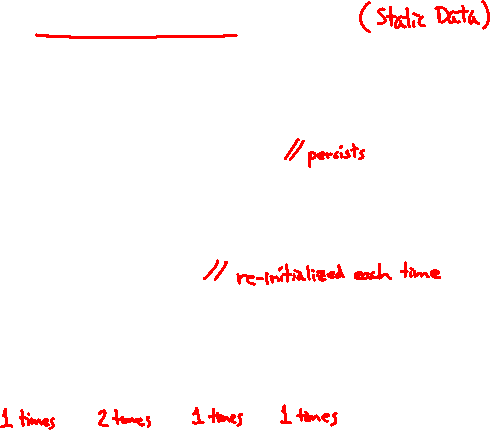 (Static Data)
// persists
// re-initialized each time
1 times 2 times 1 times 1 times